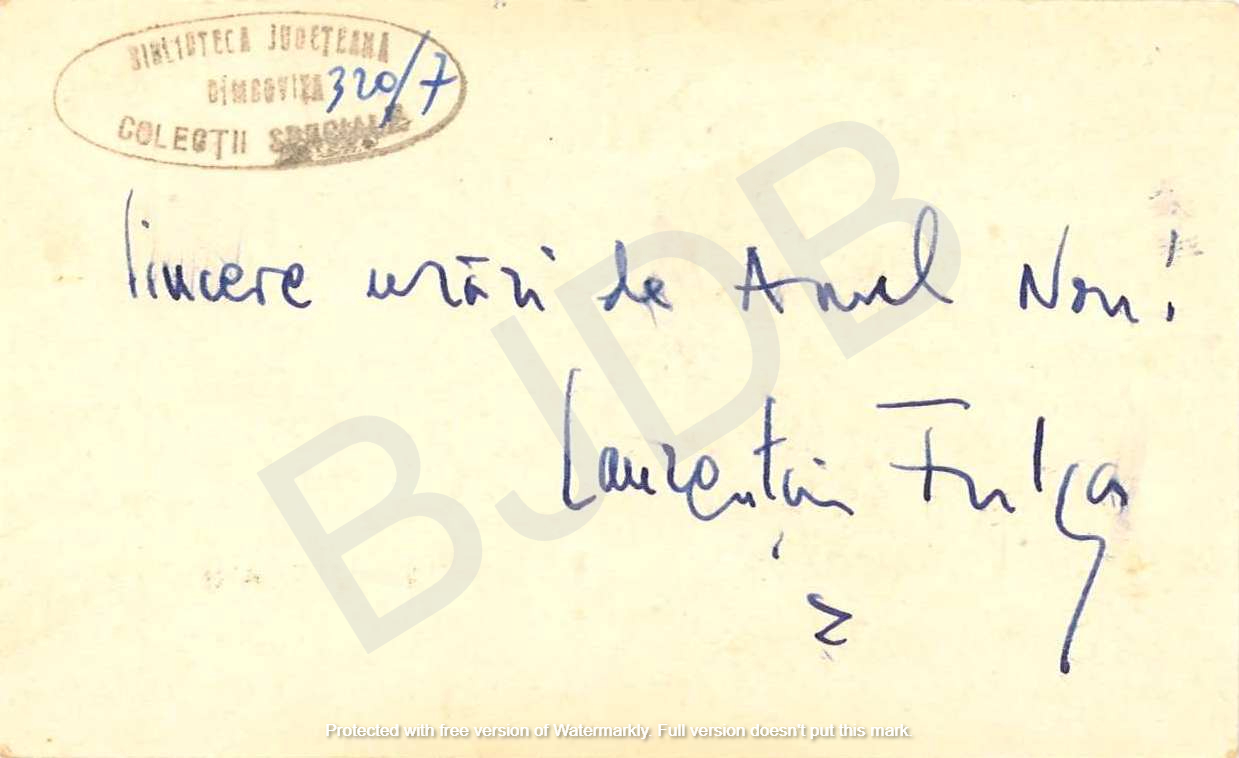 BIBLIOTECA JUDEȚEANĂ
DÎMBOVIȚA 320/7
COLECȚII SPECIALE
Sincere urări de Anul Nou!
Laurențiu Fulga
BJDB
Protected with free version of Watermarkly. Full version doesn't put this mark.